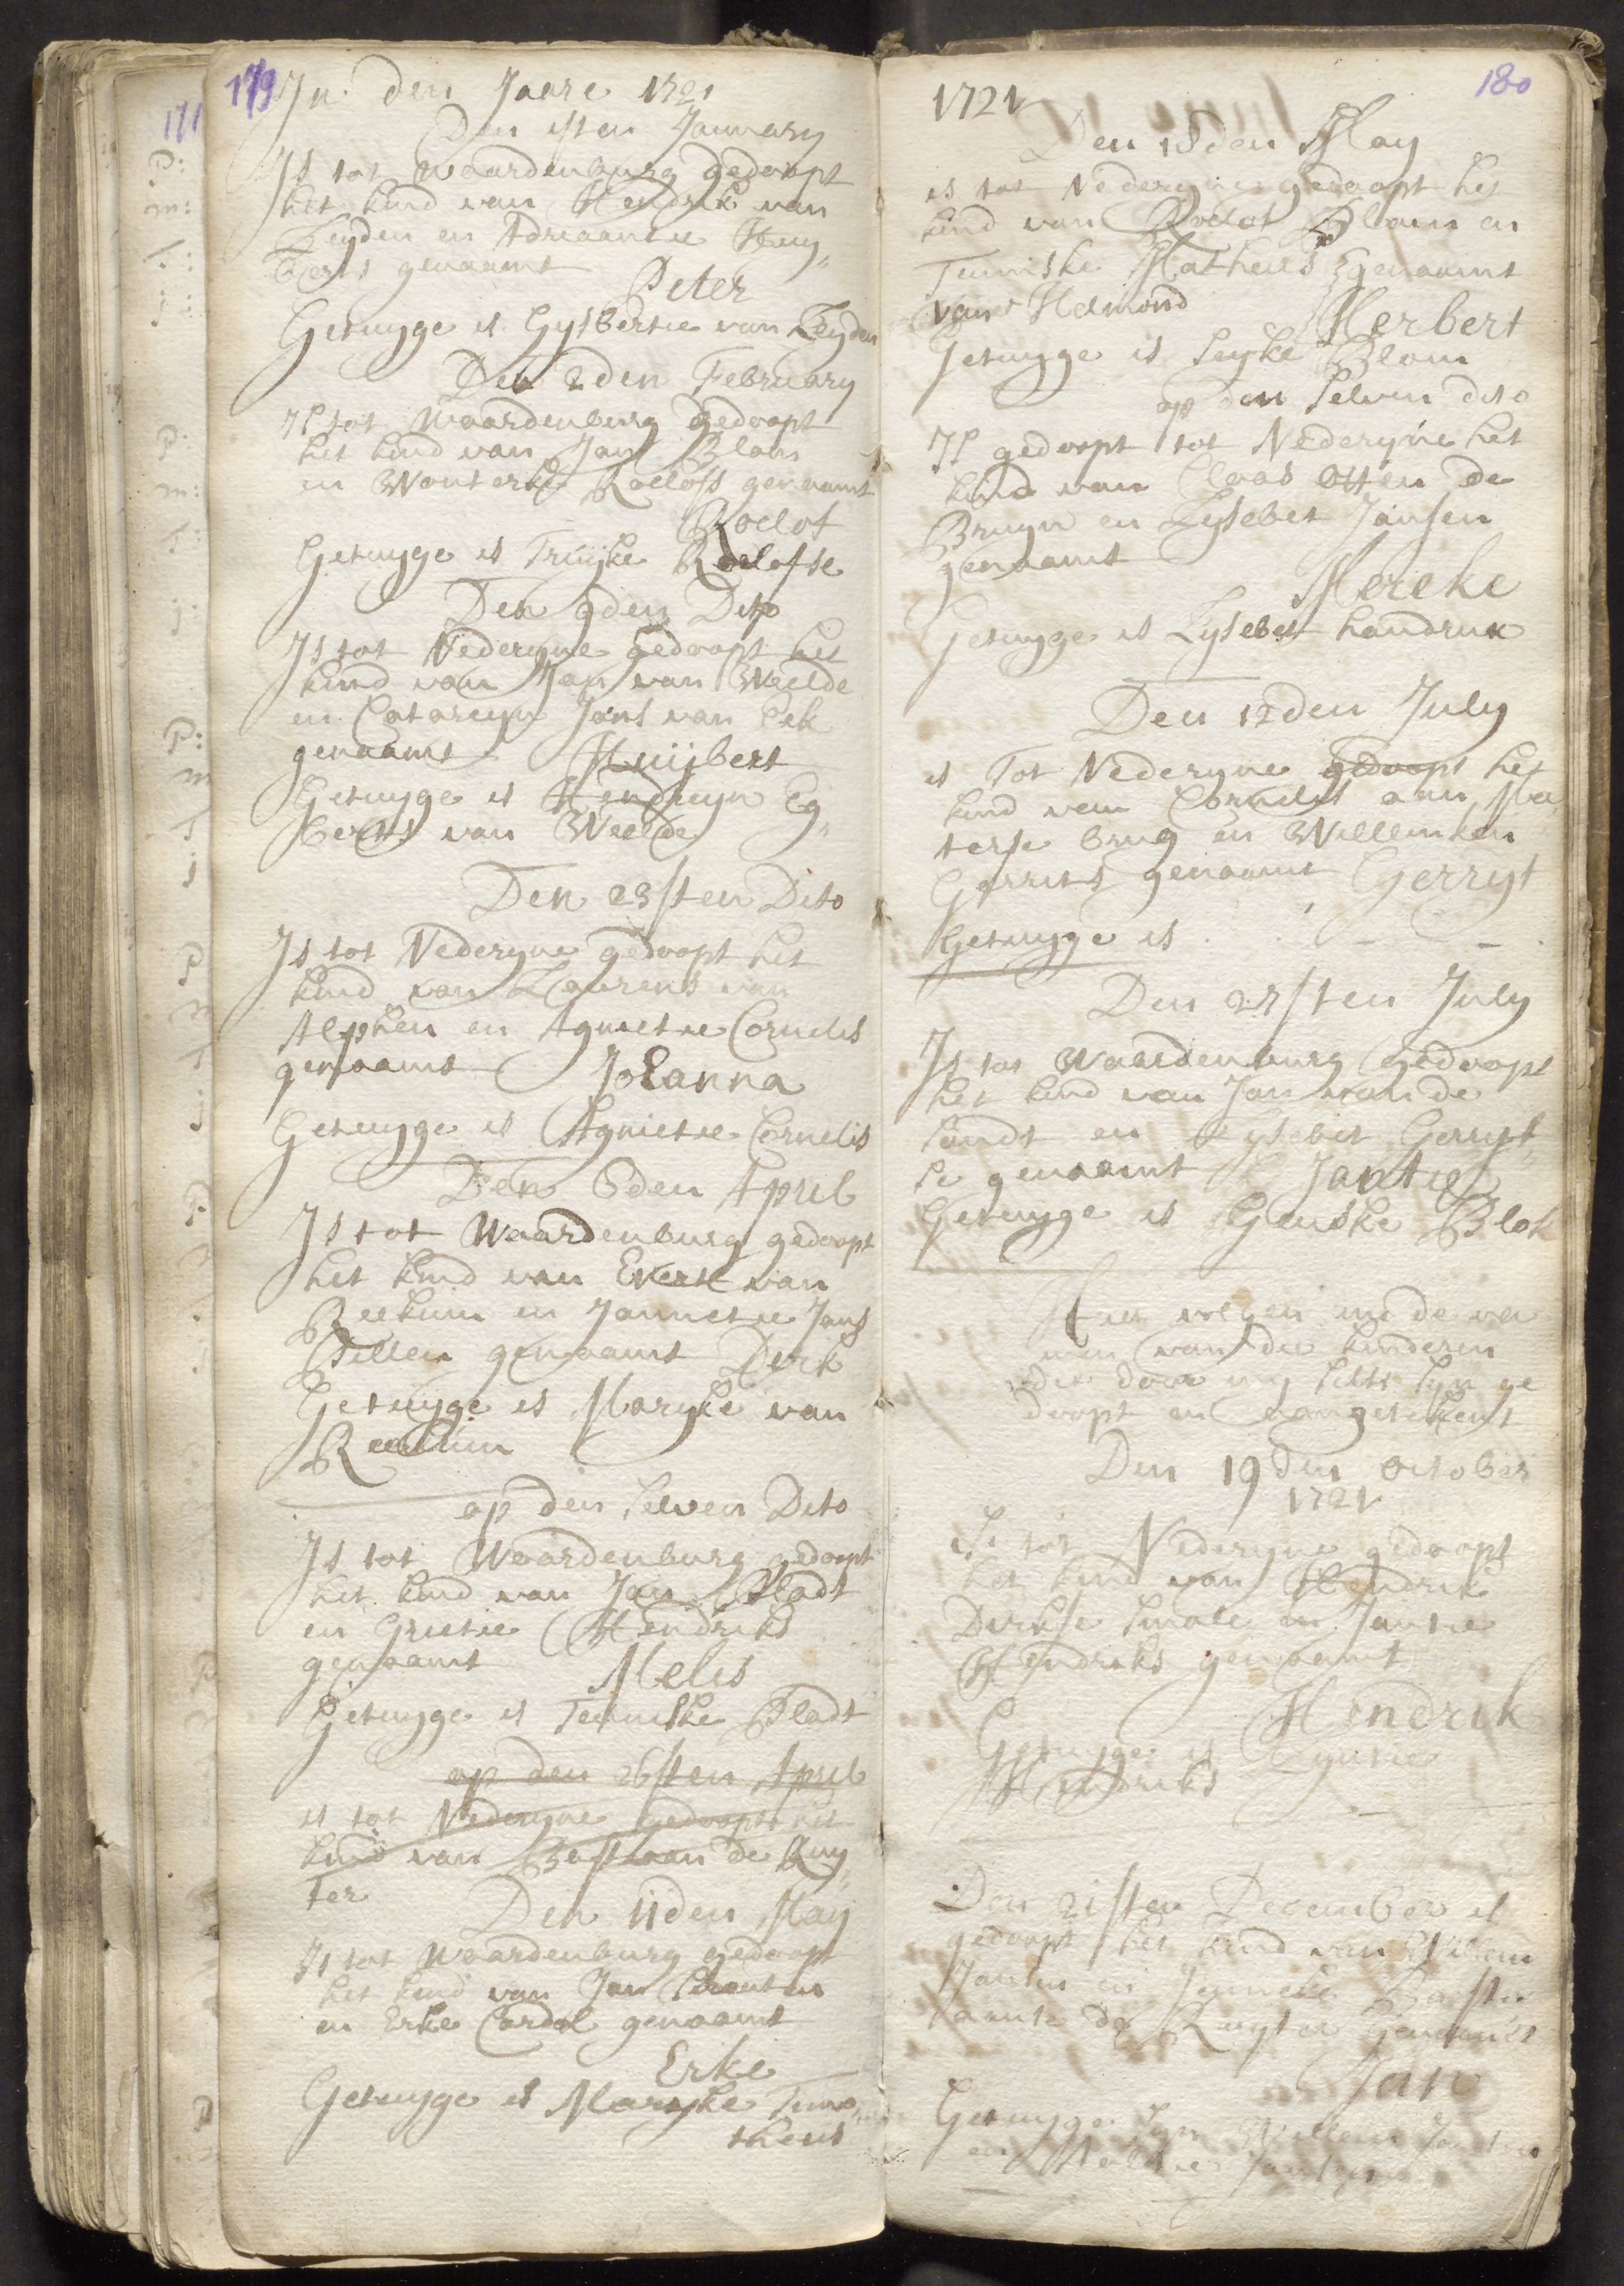 179
In den Jaare 1721
Den 1sten January
Is tot Waardenburg gedoopt
het kind van Hendrik van
Leyden en Adriaantie Huy„
berts genaamt
Peter
Getuyge is Gysbertie van Leyden
Den 2den February
Is tot Waardenburg gedoopt
het kind van Jan Blom
en Wouterke Roelofs genaamt
Roelof
Getuyge is Truijke Roelofse
Den 9den Dito
Is tot Nederyne gedoopt het
kind van Jan van Weelde
en Catareyn Jans van Eck
genaamt Huijbert
Getuyge is Hendreyn Eg„
berts van Weelde
Den 23sten Dito
Is tot Nederyne gedoopt het
kind van Laurens van
Alphen en Agnietie Cornelis
genaamt Johanna
Getuyge is Agnietie Cornelis
Den 6den April
Is tot Waardenburg gedoopt
het kind van Evert van
Reekum en Jannetie Jans
genaamt Dirk
Getuyge is Maryke van
Reekum
op den selven Dito
Is tot Waardenburg gedoopt
het kind van Jan Bladt
en Grietie Hendriks
genaamt Melis
Getuyge is Teuniske Bladt
op den 26sten April
is tot Nederyne gedoopt het
kind van Bastiaan de Ruy„
ter
Den 11den May
Is tot Waardenburg gedoopt
het kind van Jan
en Erke Cardol genaamt
Erke
Getuyge is Maryke Timo„
theus
180
1721
Den 18den May
is tot Nederyne gedoopt het
kind van Roelof Blom en
Teuniske Matheus genaamt
van Helmond
Herbert
Getuyge is Seyke Blom
op den selven dito
Is gedoopt tot Nederyne het
kind van Claas Otten de
Bruyn en Lysebet Jansen
genaamt
Mereke
Getuyge is Lysebet
Den 12den July
is Tot Nederyne gedoopt het
kind van Cornelis
brug en Willemken
Gerrits genaamt Gerryt
Getuyge is - -
Den 27sten July
Is tot Waardenburg gedoopt
het kind van Jan van de
Sandt en Lysebet Gerryt„
se genaamt Jantie
Getuyge is Geuske Blok
Hier volgen nu de na
men van die kinderen
die door my selfs syn ge
doopt en aangetekent
Den 19den October
1721
Is tot Nederyne gedoopt
het kind van Hendrik
Dirkse en Jantie
Hendriks genaamt
Hendrik
Getuyge is
Hendriks
Den 21sten December is
gedoopt het kind van Willem
Jansen en Jenneke Basti
aanse de Ruyter genaamt
Jan
Getuyge syn Willem Jansen
en